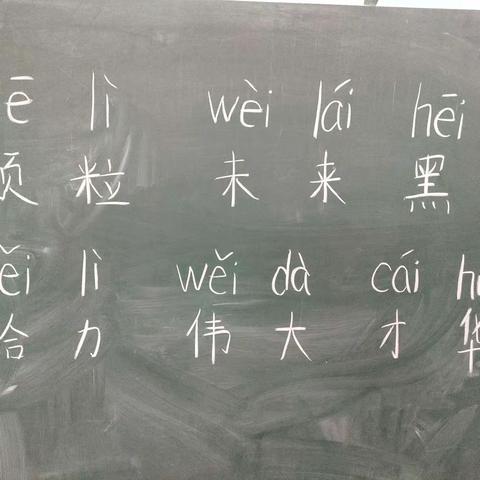 ē lì wèi lái hēi
颗粒 未来 黑
ěi lì wěi dà cái h
给力 伟大 才华